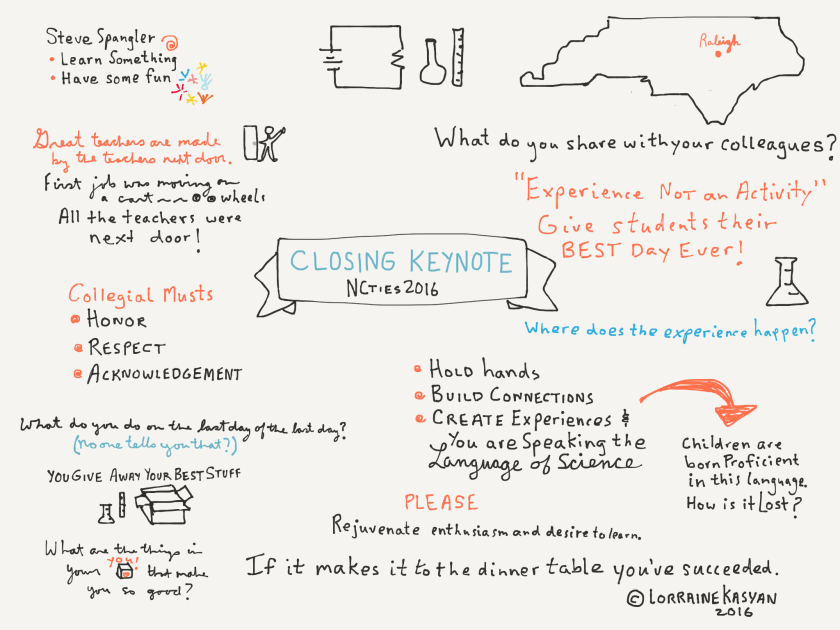 Steve Spangler
• Learn Something
• Have some fun
Raleigh
Great teachers are made
by the teachers next door.
First job was moving on
a cart wheels
All the teachers were
next door!
What do you share with your colleagues?
"Experience Not an Activity"
Give students their
BEST Day Ever!
CLOSING KEYNOTE
NCTIES 2016
Collegial Musts
HONOR
RESPECT
ACKNOWLEDGEMENT
Where does the experience happen?
HOLD hands
BUILD CONNECTIONS
CREATE Experiences &
You are Speaking the
Language of Science
Children are
born Proficient
in this language.
How is it Lost?
What do you do on the last day of the last day?
(No one tells you that?)
YOU GIVE AWAY YOUR BEST STUFF
PLEASE
Rejuvenate enthusiasm and desire to learn.
What are the things in
you!
your that make
you so good?
If it makes it to the dinner table you've succeeded.
© LORRAINE KASYAN
2016